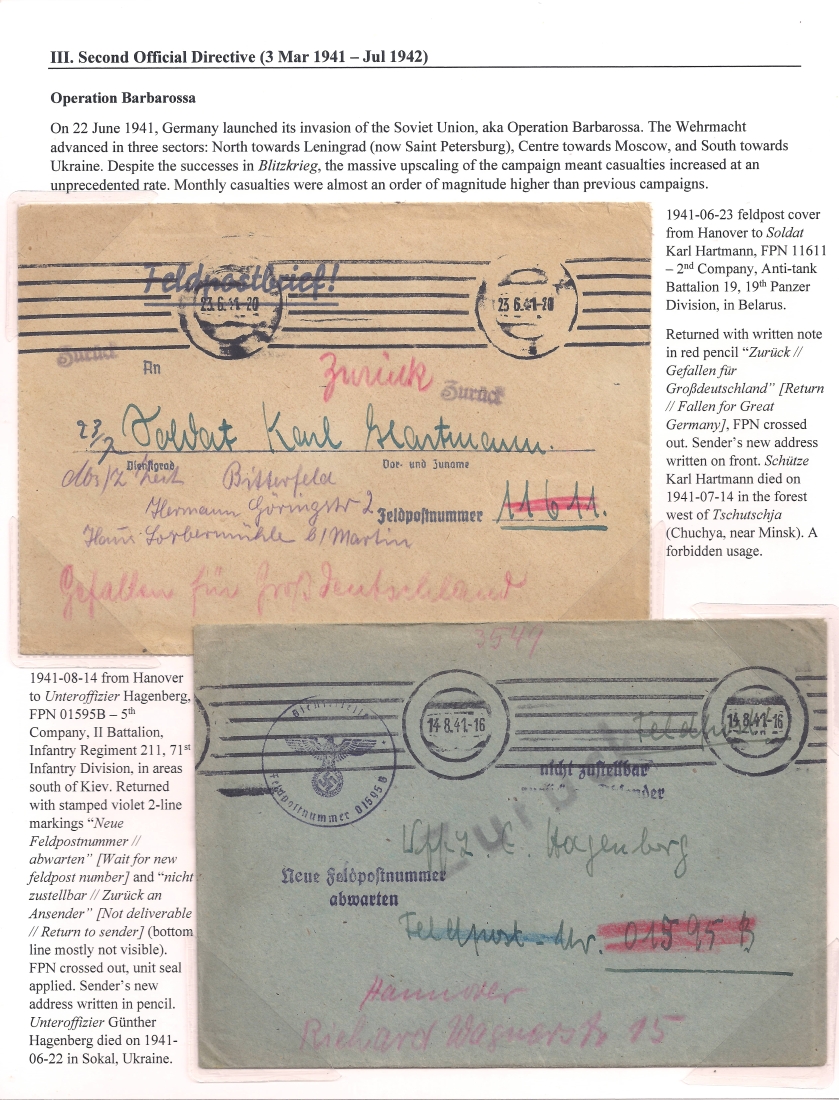 III. Second Official Directive (3 Mar 1941 – Jul 1942)
Operation Barbarossa
On 22 June 1941, Germany launched its invasion of the Soviet Union, aka Operation Barbarossa. The Wehrmacht
advanced in three sectors: North towards Leningrad (now Saint Petersburg), Centre towards Moscow, and South towards
Ukraine. Despite the successes in Blitzkrieg, the massive upscaling of the campaign meant casualties increased at an
unprecedented rate. Monthly casualties were almost an order of magnitude higher than previous campaigns.
1941-06-23 feldpost cover
from Hanover to Soldat
Karl Hartmann, FPN 11611
– 2nd Company, Anti-tank
Battalion 19, 19th Panzer
Division, in Belarus.
Returned with written note
in red pencil “Zurück //
Gefallen für
Großdeutschland” [Return
// Fallen for Great
Germany], FPN crossed
out. Sender's new address
written on front. Schütze
Karl Hartmann died on
1941-07-14 in the forest
west of Tschutschja
(Chuchya, near Minsk). A
forbidden usage.
Feldpostbrief!
23.6.41-20
23.6.41-20
Zurück
An
Zurück
Zurück
23/7 Soldat Karl Hartmann.
Dienstgrad
Vor- und Zuname
Bitterfeld
Hermann Göringstr 2
Feldpostnummer 11611.
b/ Martin
Gefallen für Großdeutschland
1941-08-14 from Hanover
to Unteroffizier Hagenberg,
FPN 01595B – 5th
Company, II Battalion,
Infantry Regiment 211, 71st
Infantry Division, in areas
south of Kiev. Returned
with stamped violet 2-line
markings “Neue
Feldpostnummer //
abwarten” [Wait for new
feldpost number] and “nicht
zustellbar // Zurück an
Ansender” [Not deliverable
// Return to sender] (bottom
line mostly not visible).
FPN crossed out, unit seal
applied. Sender's new
address written in pencil.
Unteroffizier Günther
Hagenberg died on 1941-
06-22 in Sokal, Ukraine.
14.8.41-16
14.8.41-16
Dienststelle
Feldpostnummer 01595 B
Feldpost
nicht zustellbar
Zurück
Uffz. Hagenberg
Neue Feldpostnummer
abwarten
Feldpost-Nr. 01595 B
Hannover
Richard Wagnerstr 15